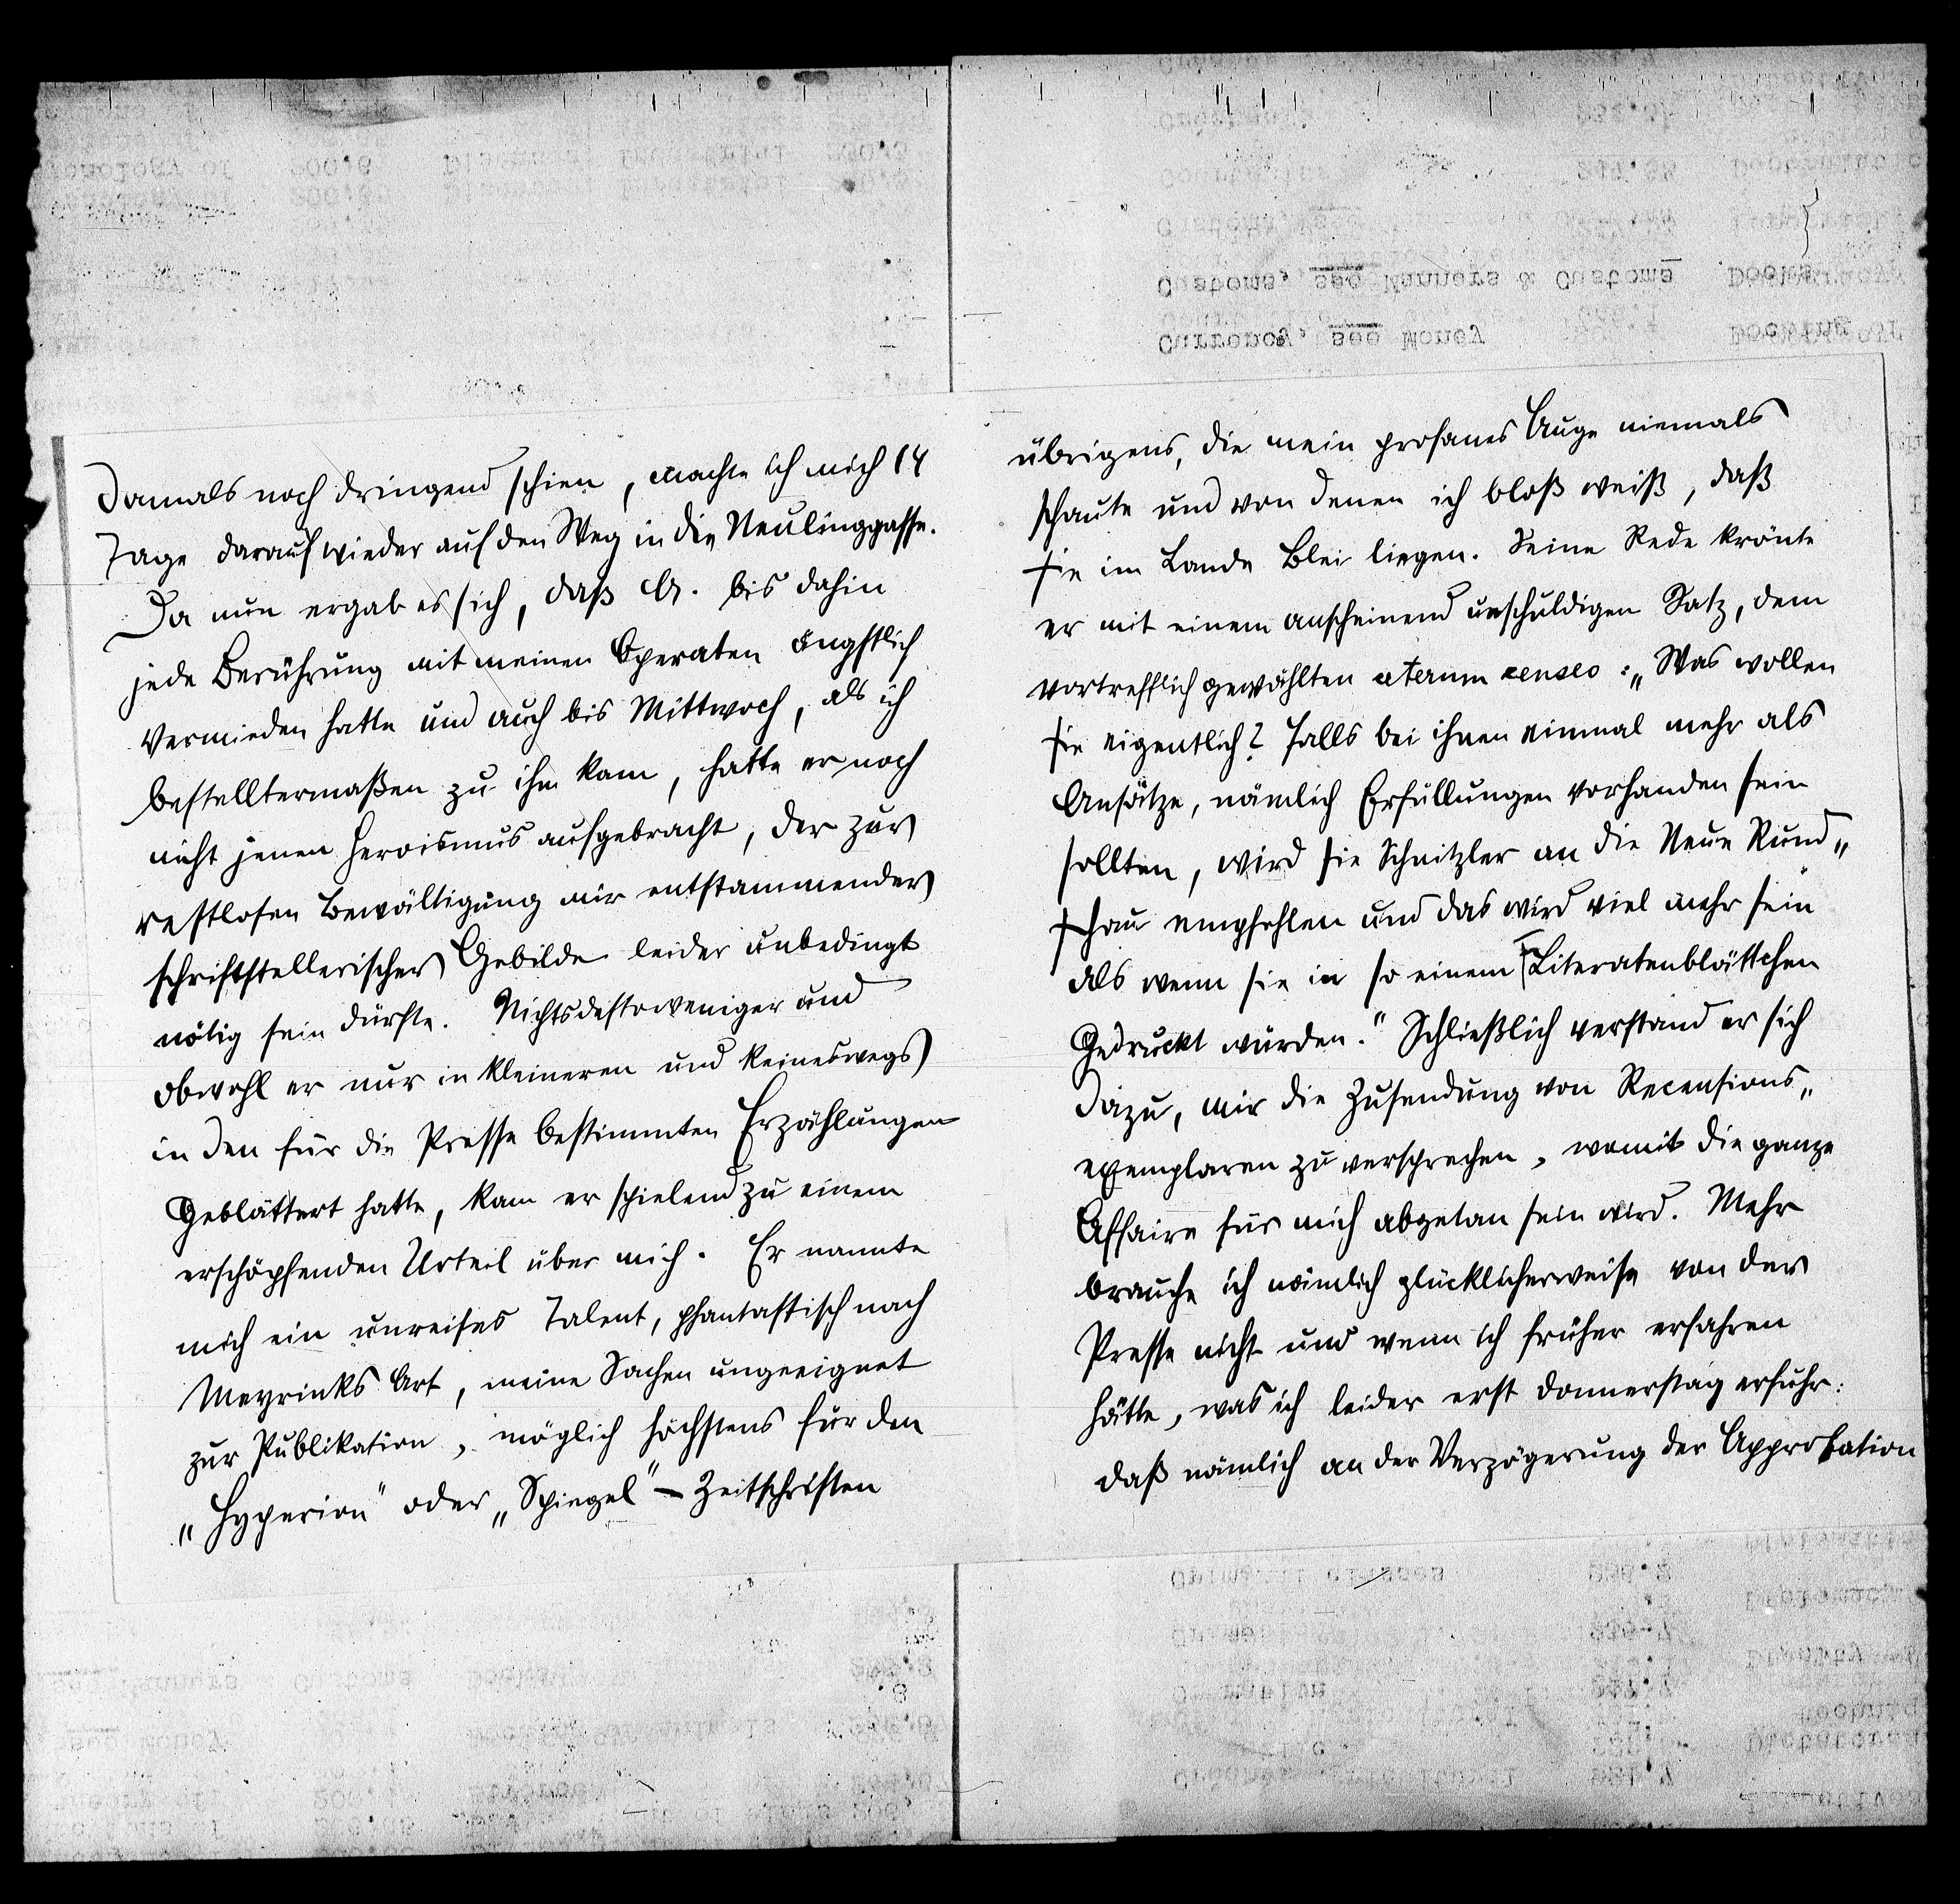 damals noch dringend schien, machte ich mich 14
Tage darauf wieder auf den Weg in die Neulinggasse.
Da nun ergab es sich, daß A. bis dahin
jede Berührung mit meinen Operaten ängstlich
vermieden hatte und auch bis Mittwoch, als ich
bestelltermaßen zu ihm kam, hatte er noch
nicht jenen Heroismus aufgebracht, der zur
restlosen Bewältigung mir entstammender
schriftstellerischer Gebilde leider unbedingt
nötig sein dürfte. Nichtsdestoweniger und
obwohl er nur in kleineren und keineswegs
in den für die Presse bestimmten Erzählungen
geblättert hatte, kam er spielend zu einem
erschöpfenden Urteil über mich. Er nannte
mich ein unreifes Talent, phantastisch nach
Meyrinks Art, meine Sachen ungeeignet
zur Publikation, möglich höchstens für den
„Hyperion" oder „Spiegel" – Zeitschriften
übrigens, die mein profanes Auge niemals
schaute und von denen ich bloß weiß, daß
sie im Lande Blei liegen. Seine Rede krönte
er mit einem anscheinend unschuldigen Satz, dem
vortrefflich gewählten ceterum censeo: „Was wollen
sie eigentlich? Falls bei ihnen einmal mehr als
Ansätze, nämlich Erfüllungen vorhanden sein
sollten, wird sie Schnitzler an die Neue Rund„
schau empfehlen und das wird viel mehr sein
als wenn sie in so einem Literatenblättchen
gedruckt würden." Schließlich verstand er sich
dazu, mir die Zusendung von Recensions„
exemplaren zu versprechen, womit die ganze
Affaire für mich abgetan sein wird. Mehr
brauche ich nämlich glücklicherweise von der
Presse nicht und wenn ich früher erfahren
hätte, was ich leider erst Donnerstag erfuhr:
daß nämlich an der Verzögerung der Approbation